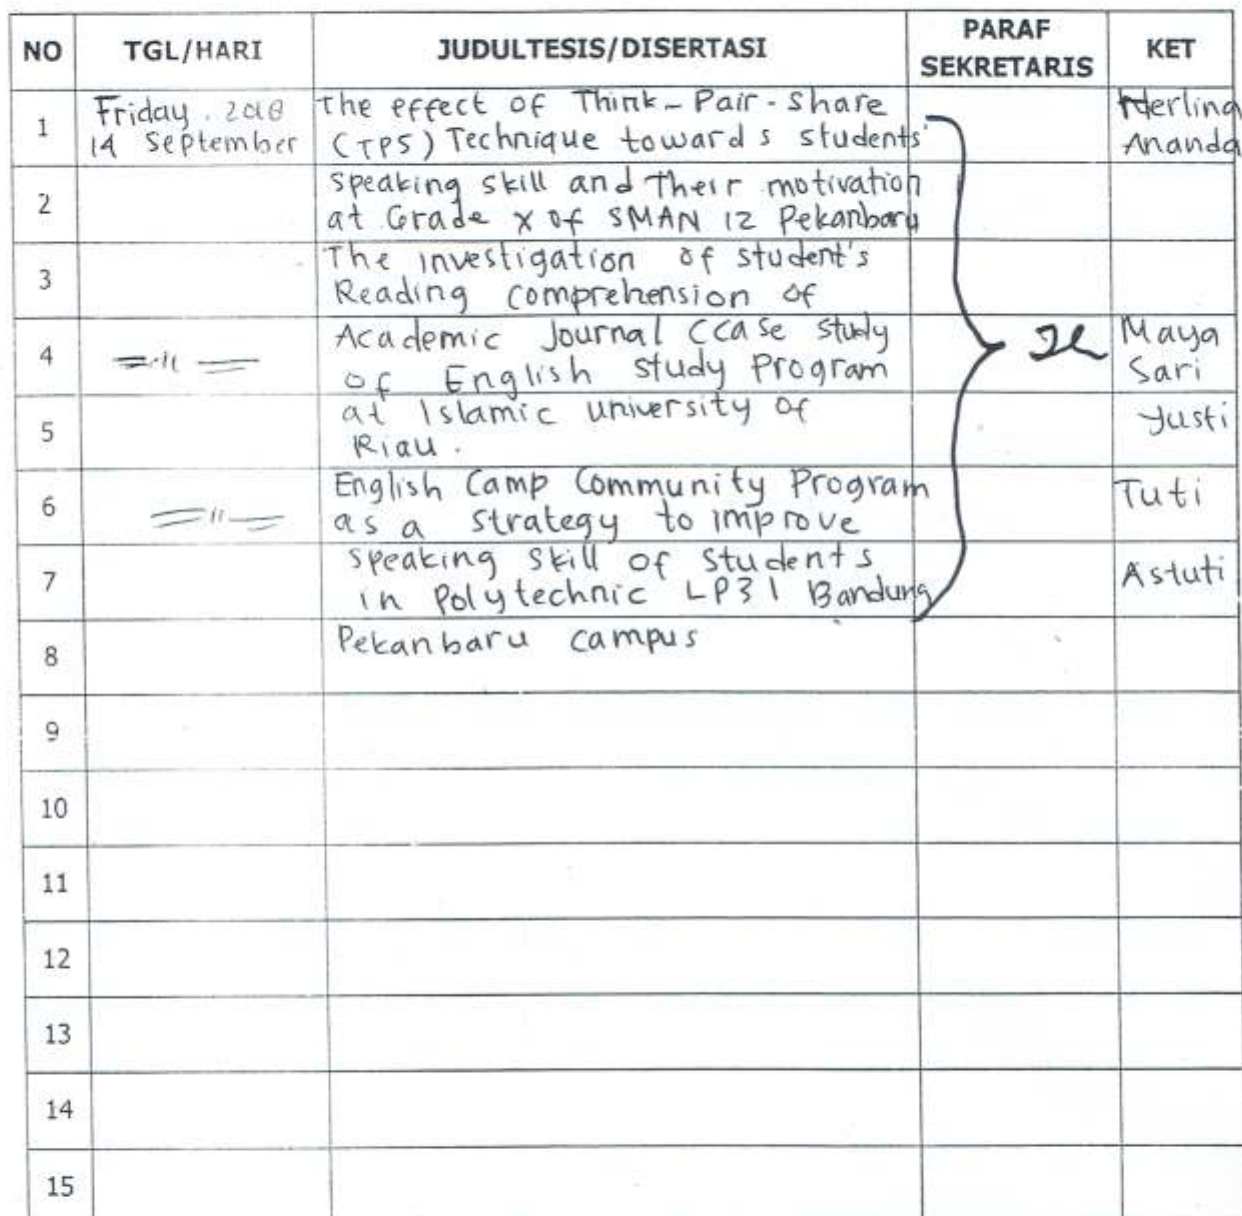 NO TGL/HARI JUDULTESIS/DISERTASI PARAF SEKRETARIS KET
1 Friday. 2018 The effect of Think-Pair-Share Herlina
14 September (TPS) Technique towards students' Ananda
2 speaking skill and Their motivation
at Grade X of SMAN 12 Pekanbaru
3 The investigation of student's
Reading comprehension of
4 Academic Journal (case study Maya
of English study Program Sari
5 at Islamic university of Yusti
Riau.
6 English Camp Community Program Tuti
as a strategy to improve
7 speaking skill of students Astuti
in Polytechnic LP3I Bandung
8 Pekanbaru campus
9
10
11
12
13
14
15